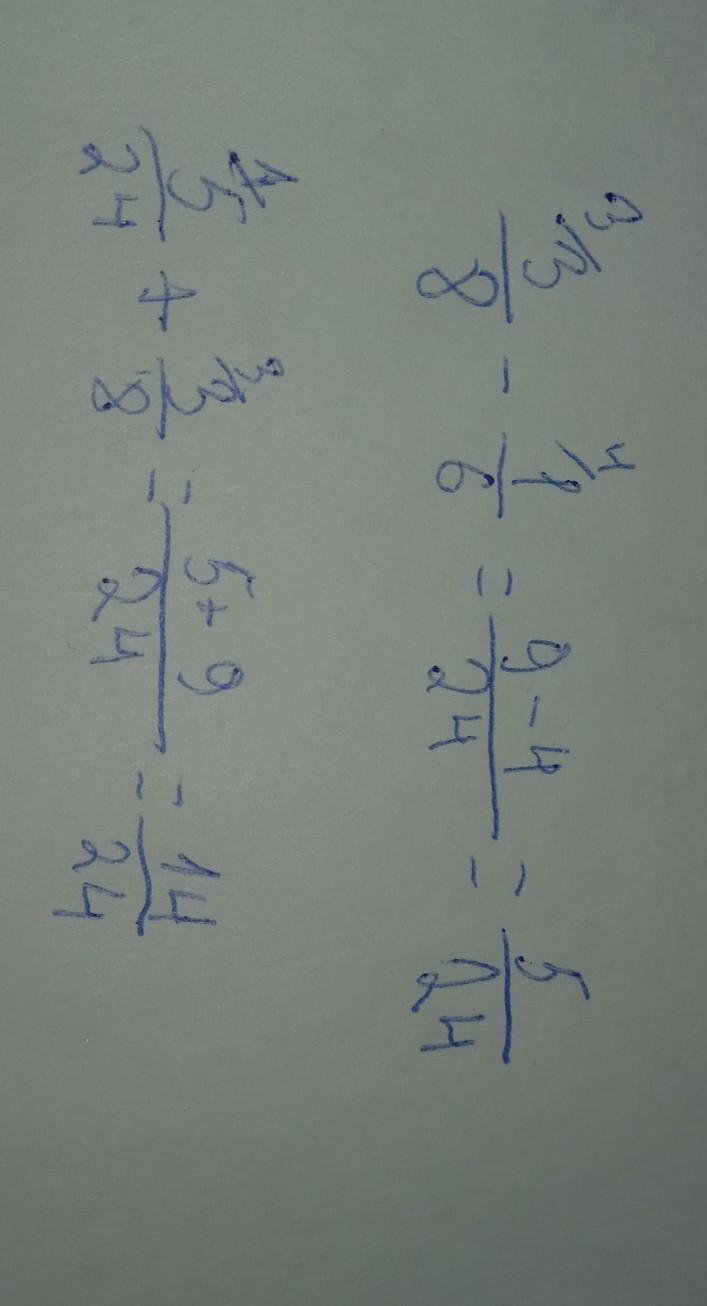 ³⁄3/8 - ⁴⁄1/6 = 9-4/24 = 5/24
¹⁄5/24 + ³⁄3/8 = 5+9/24 = 14/24